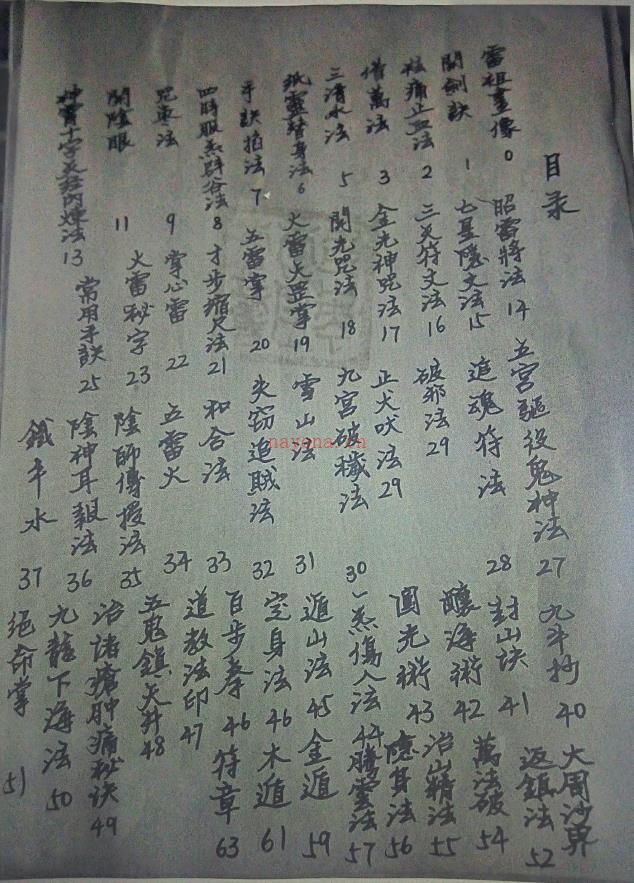 目录
雷祖畫像 0
開劍訣 1
祛痛止血法 2
借萬法 3
三清水法 5
紙靈替身法 6
手訣掐法 7
四時服炁辟谷法 8
咒棗法 9
開陰眼 11
神霄十字天经内煉法 13
昭雷將法 14
七星隱文法 15
三天符文法 16
金光神咒法 17
開光咒法 18
火雷火罡掌 19
五雷掌 20
才步缩尺法 21
掌心雷 22
火雷秘字 23
常用手訣 25
五宫驅役鬼神法 27
追魂符法 28
破邪法 29
止犬吠法 29
九宫破穢法 30
雪山法 31
失窃追賊法 32
和合法 33
五雷火 34
陰師傳授法 35
陰神耳報法 36
鐵牛水 37
九牛抄 40
封山诀 41
釀海術 42
圓光術 43
炁傷人法 44
遁山法 45
定身法 46
百步拳 46
道教法印 47
五鬼鎮天井 48
治諸瘡肿痛秘诀 49
九龍下海法 50
絕命掌 51
大周沙界
返鎮法 52
萬法破 54
治山精法 55
隱身法 56
騰雲法 57
金遁 59
木遁 61
符章 63
nayona.cn